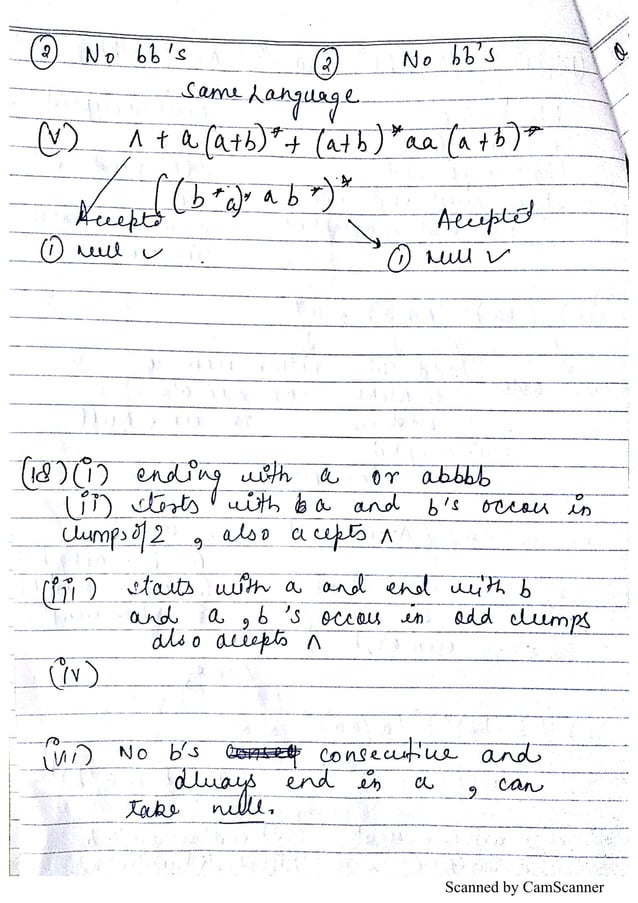 ② No bb's ② No bb's
Same Language
(v) Λ + a (a+b)* + (a+b)* aa (a+b)*
((b*a)* ab*)*
Accepts Accepted
① null ✓ ① null ✓
(18) (i) ending with a or abbbb
(ii) starts with a and b's occur in
clumps of 2 , also accepts Λ
(iii) starts with a and end with b
and a , b 's occur in odd clumps
also accepts Λ
(iv)
(vi) No b's consecutive and
always end in a , can
take null.
Scanned by CamScanner